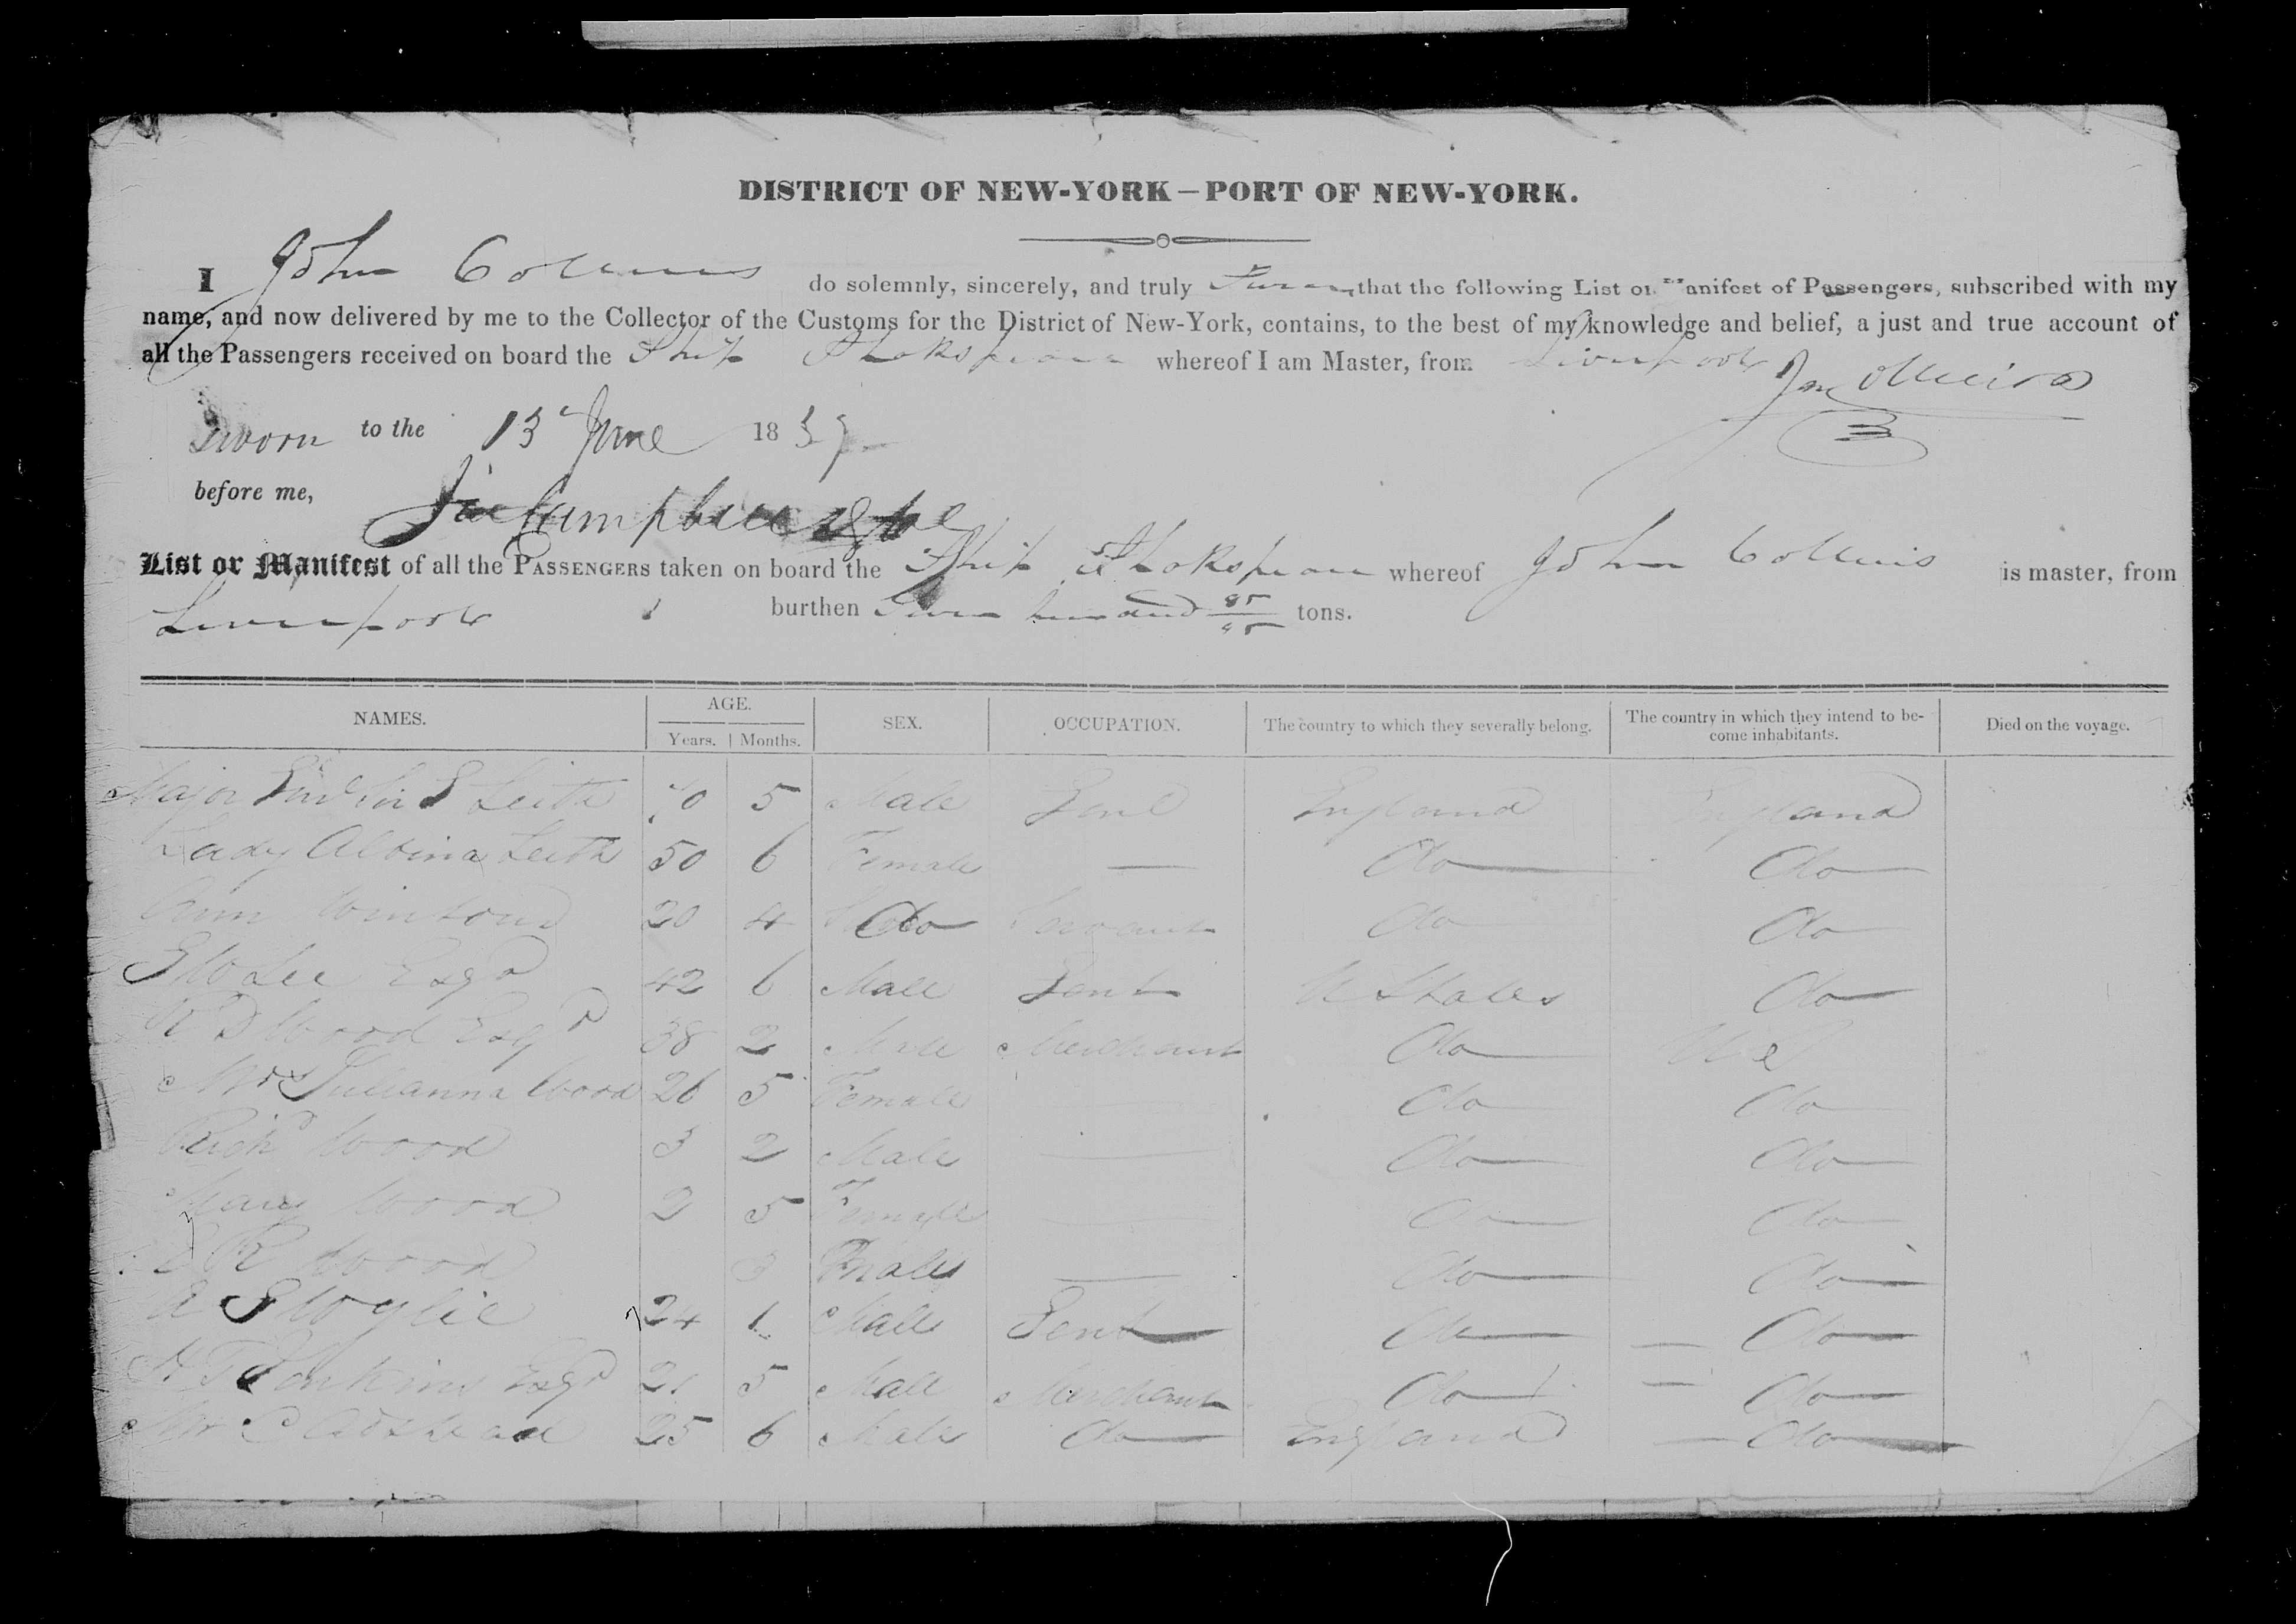 DISTRICT OF NEW-YORK—PORT OF NEW-YORK.
I John Collins do solemnly, sincerely, and truly Swear that the following List or Manifest of Passengers, subscribed with my
name, and now delivered by me to the Collector of the Customs for the District of New-York, contains, to the best of my knowledge and belief, a just and true account of
all the Passengers received on board the Ship Shakspeare whereof I am Master, from Liverpool
Jno Collins
Sworn to the 13 June 183
before me,
List or Manifest of all the PASSENGERS taken on board the Ship Shakspeare whereof John Collins is master, from
Liverpool burthen hundred tons.
NAMES. AGE. Years. Months. SEX. OCCUPATION. The country to which they severally belong. The country in which they intend to become inhabitants. Died on the voyage.
Major Leith 5 Male England England
Lady Albina Leith 50 6 Female — Do Do
Ann 20 4 Do Servant Do Do
Lee Esqr 42 6 Male Gent U States Do
Wood Esqr 38 2 Male Merchant Do U S
Mrs Julianna Wood 26 5 Female Do Do
Richd Wood 3 2 Male — Do Do
Mary Wood 2 5 Female — Do Do
R Wood 3 — Do Do
Wylie 24 1 Male Gent Do — Do
Esqr 5 Male Merchant Do — Do
Mr 25 6 Male Do England — Do